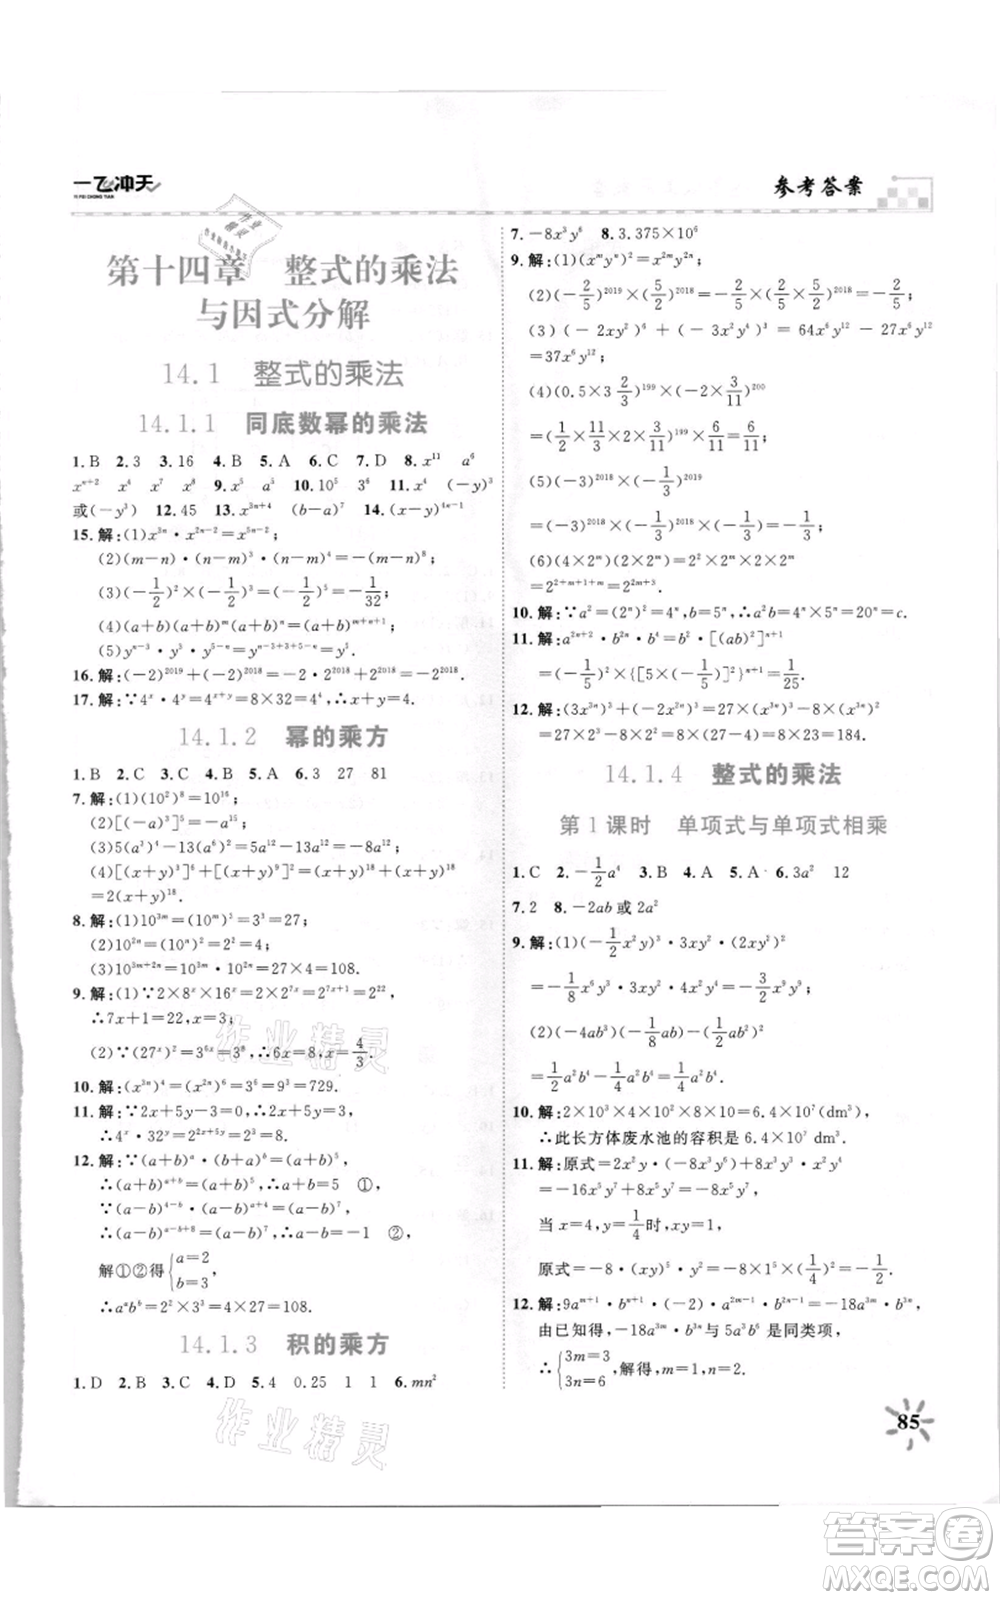 一飞冲天
YI FEI CHONG TIAN
参考答案
第十四章 整式的乘法
与因式分解
14.1 整式的乘法
14.1.1 同底数幂的乘法
1.B 2.3 3.16 4.B 5.A 6.C 7.D 8.x¹¹ a⁶
xⁿ⁺² x⁴ x⁷ 9.x⁶ a⁵ 10.10⁵ 3⁶ 11.x⁴ (-y)³
或(-y³) 12.45 13.x³ⁿ⁺⁴ (b-a)⁷ 14.(x-y)⁴ⁿ⁻¹
15.解:(1)x³ⁿ·x²ⁿ⁻²=x⁵ⁿ⁻²;
(2)(m-n)·(m-n)⁵·(m-n)²=(m-n)⁸;
(3)(-1/2)×(-1/2)²×(-1/2)²=(-1/2)⁵=-1/32;
(4)(a+b)(a+b)ᵐ(a+b)ⁿ=(a+b)ᵐ⁺ⁿ⁺¹;
(5)yⁿ⁻³·y³·y⁵⁻ⁿ=yⁿ⁻³⁺³⁺⁵⁻ⁿ=y⁵.
16.解:(-2)²⁰¹⁹+(-2)²⁰¹⁸=-2·2²⁰¹⁸+2²⁰¹⁸=-2²⁰¹⁸.
17.解:∵4ˣ·4ʸ=4ˣ⁺ʸ=8×32=4⁴,∴x+y=4.
14.1.2 幂的乘方
1.B 2.C 3.D 4.B 5.A 6.3 27 81
7.解:(1)(10²)⁸=10¹⁶;
(2)[(-a)⁵]³=(-a)¹⁵=-a¹⁵;
(3)5(a³)⁴-13(a⁶)²=5a¹²-13a¹²=-8a¹²;
(4)[(x+y)³]⁶+[(x+y)⁹]²=(x+y)¹⁸+(x+y)¹⁸
=2(x+y)¹⁸.
8.解:(1)10³ᵐ=(10ᵐ)³=3³=27;
(2)10²ⁿ=(10ⁿ)²=2²=4;
(3)10³ᵐ⁺²ⁿ=10³ᵐ·10²ⁿ=27×4=108.
9.解:(1)∵2×8ˣ×16ˣ=2¹⁺³ˣ⁺⁴ˣ=2⁷ˣ⁺¹=2²²,
∴7x+1=22,∴x=3.
(2)∵(27ˣ)²=3⁶ˣ=3⁸,∴6x=8,∴x=4/3.
10.解:(x³ⁿ)⁴=(x²ⁿ)⁶=3⁶=729.
11.解:∵2x+5y-3=0,∴2x+5y=3,
∴4ˣ·32ʸ=2²ˣ·2⁵ʸ=2²ˣ⁺⁵ʸ=2³=8.
12.解:∵(a+b)ᵃ·(b+a)ᵇ=(a+b)⁵,
∴(a+b)ᵃ⁺ᵇ=(a+b)⁵,∴a+b=5 ①
∵(a-b)⁴⁻ᵇ·(a-b)ᵃ⁺⁴=(a-b)⁷,
∴(a-b)ᵃ⁻ᵇ⁺⁸=(a-b)⁷,∴a-b=-1 ②,
解①②得{a=2
b=3,
∴aᵃbᵇ=2²×3³=4×27=108.
14.1.3 积的乘方
1.D 2.B 3.C 4.D 5.4 0.25 1 1 6.mn²
7.-8x³y⁶ 8.3.375×10⁶
9.解:(1)(a²b)³=(a²)³·b³=a⁶b³;
(2)(-2/5)²⁰¹⁹×(5/2)²⁰¹⁸=(-2/5×5/2)²⁰¹⁸×(-2/5)=-2/5;
(3)(-2xy²)⁶+(-3x²y⁴)³=64x⁶y¹²-27x⁶y¹²
=37x⁶y¹²;
(4)(0.5×3 2/3)¹⁹⁹×(-2×3/11)²⁰⁰
=(1/2×11/3×2×3/11)¹⁹⁹×6/11=6/11;
(5)(-3)²⁰¹⁸×(-1/3)²⁰¹⁹
=(-3)²⁰¹⁸×(-1/3)²⁰¹⁸×(-1/3)=-1/3;
(6)(4×2ⁿ)(2×2ᵐ)=(2²×2ⁿ)(2×2ᵐ)
=2²⁺ⁿ⁺¹⁺ᵐ=2ᵐ⁺ⁿ⁺³.
10.解:∵a²=(2ⁿ)²=4ⁿ,b=5ⁿ,∴a²b=4ⁿ×5ⁿ=20ⁿ=c.
11.解:a²ⁿ⁺²·bⁿ·bⁿ⁺²=a²ⁿ⁺²·b²ⁿ⁺²=[(ab)²]ⁿ⁺¹
=(-1/5)²×{[5×(-1/5)]²}ⁿ⁺¹=1/25.
12.解:(3x³ⁿ)²-4(x²)²ⁿ=9(x²ⁿ)³-4(x²ⁿ)²
=9×2³ⁿ-4×2²ⁿ=25×8-4×4=200-16=184.
14.1.4 整式的乘法
第1课时 单项式与单项式相乘
1.C 2.-1/2a⁴ 3.B 4.A 5.A 6.3a² 12
7.2 8.-2ab或2a²
9.解:(1)(-1/2x²y)³·3xy²·(2xy²)²
=-1/8x⁶y³·3xy²·4x²y⁴=-3/2x⁹y⁹;
(2)(-4ab³)(-1/8ab)-(1/2ab²)²
=1/2a²b⁴-1/4a²b⁴=1/4a²b⁴.
10.解:2×10³×4×10²×8×10=6.4×10⁷(dm³),
∴此长方体废水池的容积是6.4×10⁷ dm³.
11.解:原式=2x²y·(-8x³y⁶)+8x³y⁵·x²y²
=-16x⁵y⁷+8x⁵y⁷=-8x⁵y⁷,
当x=4,y=1/4时,xy=1,
原式=-8·(xy)⁵·y²=-8×1⁵×(1/4)²=-1/2.
12.解:9aᵐ⁺¹·bⁿ⁺¹·(-2)·a²ᵐ⁻¹·b²ⁿ⁻¹=-18a³ᵐ·b³ⁿ,
由已知得,-18a³ᵐ·b³ⁿ与5a³b⁶是同类项,
∴{3m=3
3n=6,解得,m=1,n=2.
85
作业精灵
作业精灵
作业精灵
答案圈
MXQE.COM